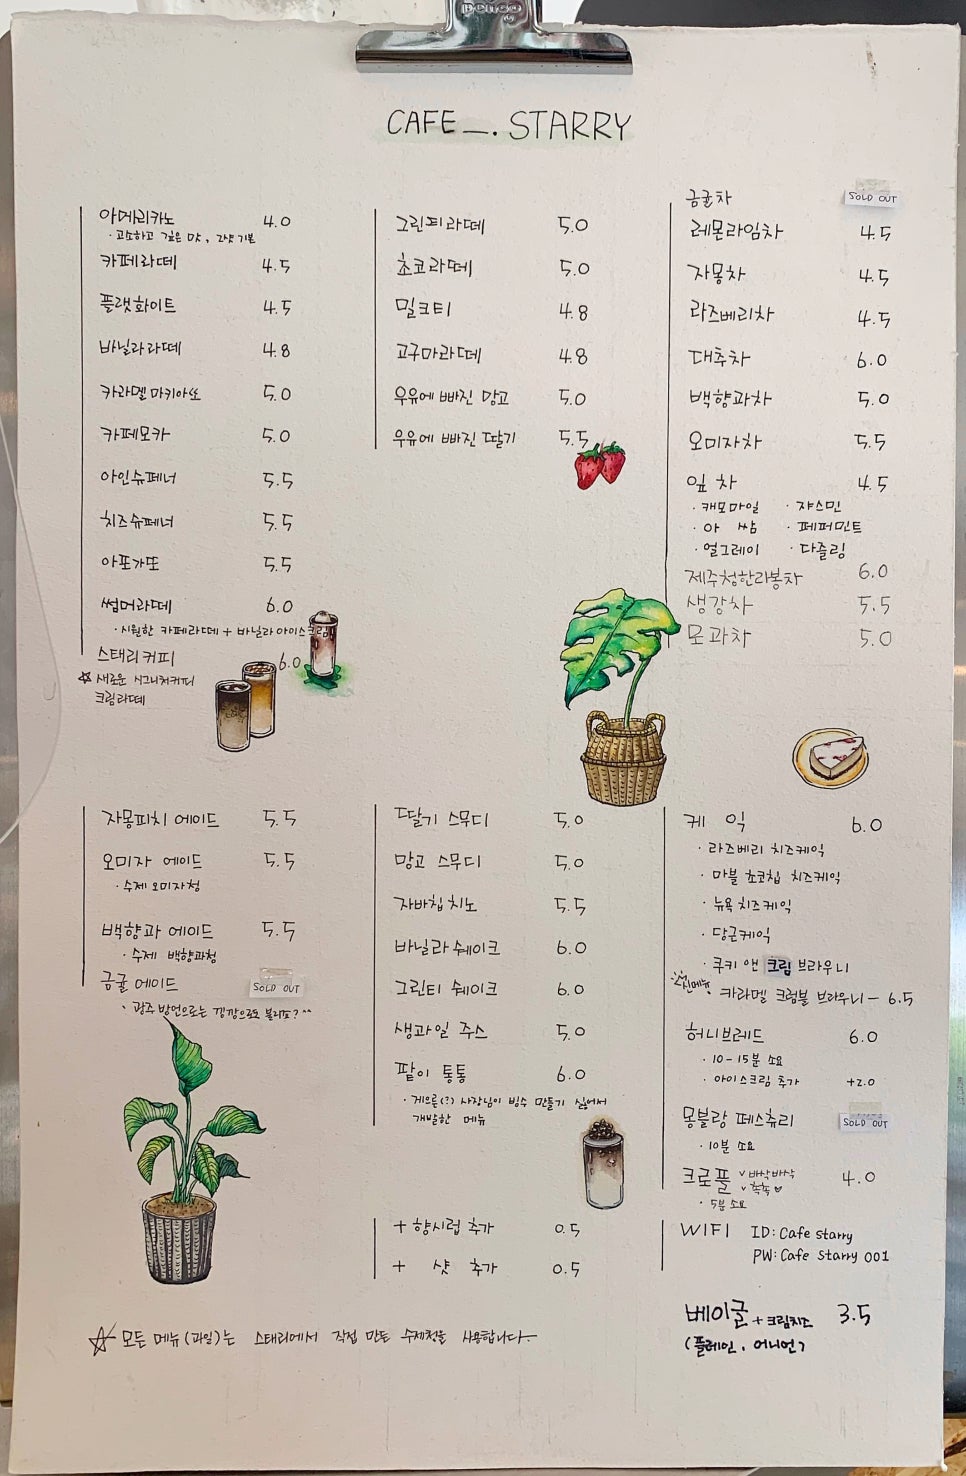 CAFE _. STARRY
아메리카노 4.0
· 고소하고 깊은 맛, 2샷 기본
카페라떼 4.5
플랫화이트 4.5
바닐라라떼 4.8
카라멜마키아또 5.0
카페모카 5.0
아인슈페너 5.5
치즈슈페너 5.5
아포가또 5.5
썸머라떼 6.0
· 시원한 카페라떼 + 바닐라아이스크림
스태리커피 6.0
☆ 새로운 시그니처커피
크림라떼
그린티라떼 5.0
초코라떼 5.0
밀크티 4.8
고구마라떼 4.8
우유에 빠진 망고 5.0
우유에 빠진 딸기 5.5
금귤차 SOLD OUT
레몬라임차 4.5
자몽차 4.5
라즈베리차 4.5
대추차 6.0
백향과차 5.0
오미자차 5.5
잎차 4.5
· 캐모마일 · 쟈스민
· 아쌈 · 페퍼민트
· 얼그레이 · 다즐링
제주청한라봉차 6.0
생강차 5.5
모과차 5.0
자몽피치 에이드 5.5
오미자 에이드 5.5
· 수제 오미자청
백향과 에이드 5.5
· 수제 백향과청
금귤 에이드 SOLD OUT
· 광주 방언으로는 낑깡으로도 불리죠? ^^
딸기 스무디 5.0
망고 스무디 5.0
자바칩치노 5.5
바닐라 쉐이크 6.0
그린티 쉐이크 6.0
생과일 주스 5.0
팥이 통통 6.0
· 게으른(?) 사장님이 빙수 만들기 싫어서
개발한 메뉴
+ 향시럽 추가 0.5
+ 샷 추가 0.5
케익 6.0
· 라즈베리 치즈케익
· 마블 초코칩 치즈케익
· 뉴욕치즈케익
· 당근케익
· 쿠키 앤 크림 브라우니
신메뉴 카라멜 크럼블 브라우니 - 6.5
허니브레드 6.0
· 10-15분 소요
· 아이스크림 추가 +2.0
몽블랑 페스츄리 SOLD OUT
· 10분 소요
크로플 ∨바삭바삭 4.0
∨촉촉♡
· 5분 소요
WIFI ID: Cafe starry
PW: Cafe starry 001
베이글 + 크림치즈 3.5
(플레인, 어니언)
☆ 모든 메뉴(과일)는 스태리에서 직접 만든 수제청을 사용합니다-